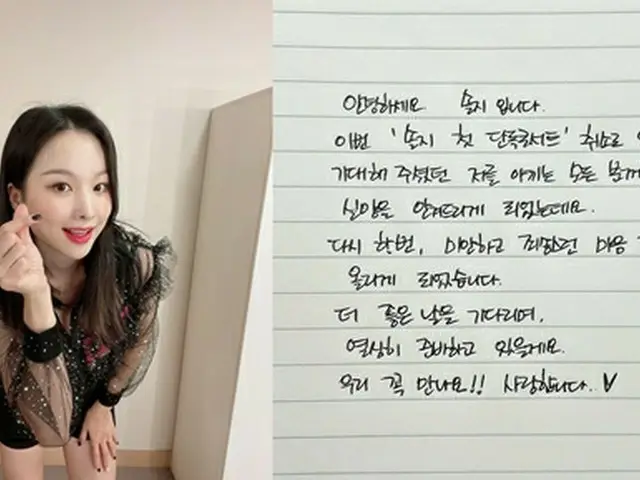 안녕하세요 솔지 입니다.
이번 '솔지 첫 단독콘서트' 취소로
기대해 주셨던 저를 아끼는 모든 분께
실망을 안겨드리게 되었는데요.
다시 한번, 미안하고 죄송한 마음
올리게 되었습니다.
더 좋은 날을 기다리며,
열심히 준비하고 있을게요.
우리 꼭 만나요!! 사랑합니다.